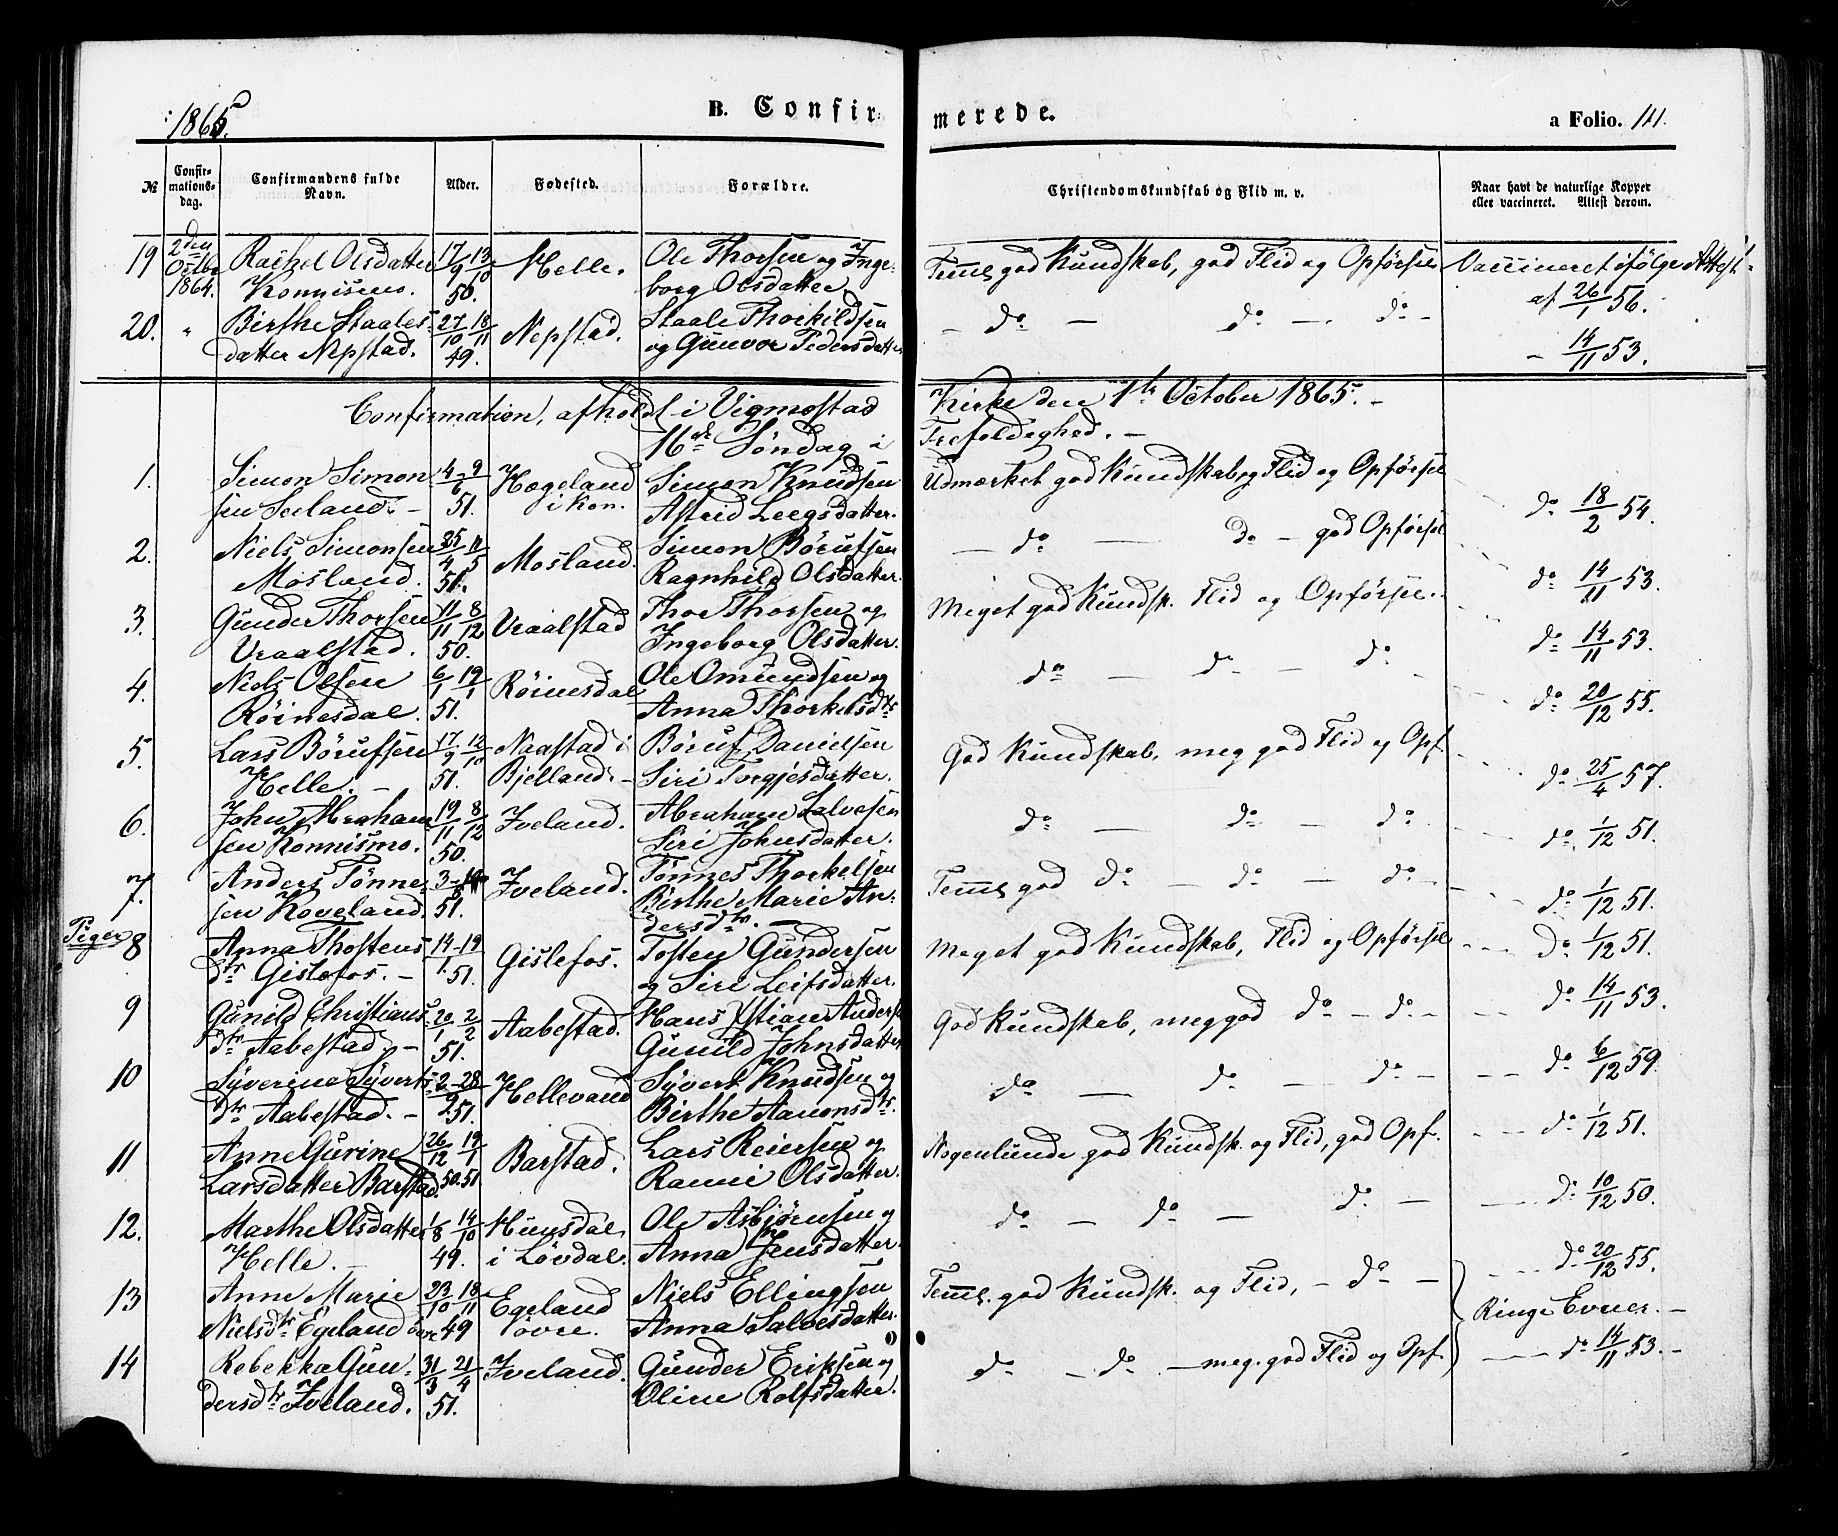 1865.
B. Confirmerede.
a Folio. 111.
№ Confirmations-dag. Confirmandens fulde Navn. Alder. Fødested. Forældre. Christendomskundskab og Flid m. v. Naar havt de naturlige Kopper eller vaccineret. Attest derom.
19 2den Octbr 1864. Rachel Olsdatter Konnismo. 17/9 13/10 50. Helle. Ole Thorsen og Ingeborg Olsdatter. Teml. god Kundskab, god Flid og Opførsel Vaccineret ifølge Attest af 26/1 56.
20. " Birthe Staalesdatter Nepstad. 27/10 18/11 49. Nepstad. Staale Thorkildsen og Gunvor Pedersdatter - do - do - do - - 14/11 53.
Confirmation, afholdt i Vigmostad Kirke den 1te October 1865. -
16de Søndag i Trefoldighed. -
1. Simon Simonsen Seeland. - 4-9/6 51. Høgeland i Kon. Simon Knudsen Astrid Leegsdatter. Udmærket god Kundskab, Flid og Opførsel do 18/2 54.
2. Niels Simonsen Mosland. 25/4 11/5 51. Mosland. Simon Børufsen Ragnhild Olsdatter. - do - do - god Opførsel do 14/11 53.
3. Gunder Thorsen Vraalstad. 11/11 8/12 50. Vraalstad Thor Thorsen og Ingeborg Olsdatter. Meget god Kundsk. Flid og Opførsel. do 14/11 53.
4. Niels Olsen Røinesdal. 6/1 19/1 51. Røinesdal Ole Omundsen og Anna Thorkelsdtr do - do - do do 20/12 55.
5. Lars Børufsen Helle. - 17/9 12/10 51. Naastad i Bjelland. - Børuf Danielsen Siri Torgjesdatter. God Kundskab, meg god Flid og Opf. do 25/4 57.
6. John Abrahamsen Konnismo. 19/11 8/12 50. Iveland. Abraham Salvesen Siri Johnsdatter. do - do - do do 1/12 51.
7. Anders Tønnesen Koveland. 51. Iveland. Tønnes Thorkelsen Birthe Marie Andersdtr. - Teml. god do - do - do - do 1/12 51.
Piger
8 Anna Thostensdtr Gislefos. - 14-19/1 51. Gislefos. Tosten Gundersen og Siri Leifsdatter. Meget god Kundskab, Flid og Opførsel do 1/12 51.
9 Gunild Christiansdtr Aabestad. - 20/1 2/2 51. Aabestad. Hans Xstian Anders Gunild Johnsdatter God Kundskab, meg god do - do - do 14/11 53.
10 Syverine Syvertsdtr Aabestad. - 2-28/9 51. Hellevand Syvert Knudsen og Birthe Aanonsdtr. do - do - do - do 6/12 59.
11 Anne Gurine Larsdatter Barstad. 26/12 19/1 50. 51 Barstad. Lars Reiersen og Rannei Olsdatter. Nogenlunde god Kundsk. og Flid, god Opf. do 1/12 51.
12. Marthe Olsdatter Helle. - 1/8 14/10 49. Hunsdal i Løvdal. Ole Asbjørnsen og Anna Jensdatter. do - do - do - do 10/12 50.
13 Anne Marie Nielsdtr Egeland øvre 23/10 18/11 49 Egeland øvre. Niels Ellingsen Anna Salvesdatter. Teml. god Kundsk. og Flid, - do - do 20/12 55.
Ringe Evner. -
14 Rebekka Gundersdtr Iveland. 31/3 21/4 51. Iveland. Gunder Eriksen og Oline Rolfsdatter. do - do - meg. god Flid og Opf. do 14/11 53. -